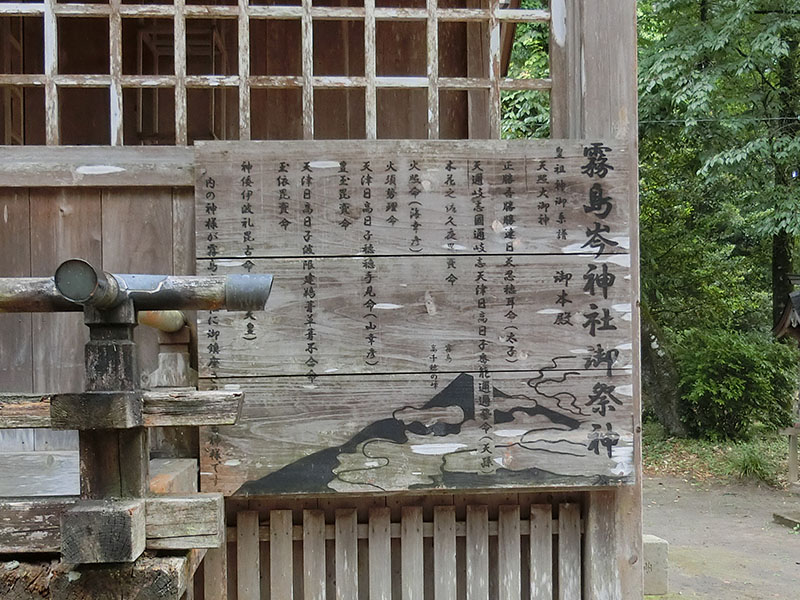 霧島岑神社御祭神
皇祖神御系譜 御本殿
天照大御神
正勝吾勝勝速日天忍穂耳命（太子）
天邇岐志国邇岐志天津日高日子番能邇邇芸命（天孫）
木花之佐久夜毘売命
霧島
高千穂の峰
火照命（海幸彦）
火須勢理命
天津日高日子穂穂手見命（山幸彦）
豊玉毘売命
天津日高日子波限建鵜葺草葺不合命
玉依毘売命
神倭伊波礼毘古命
皇）
内の神様が霧島
に御鎮座
神様で